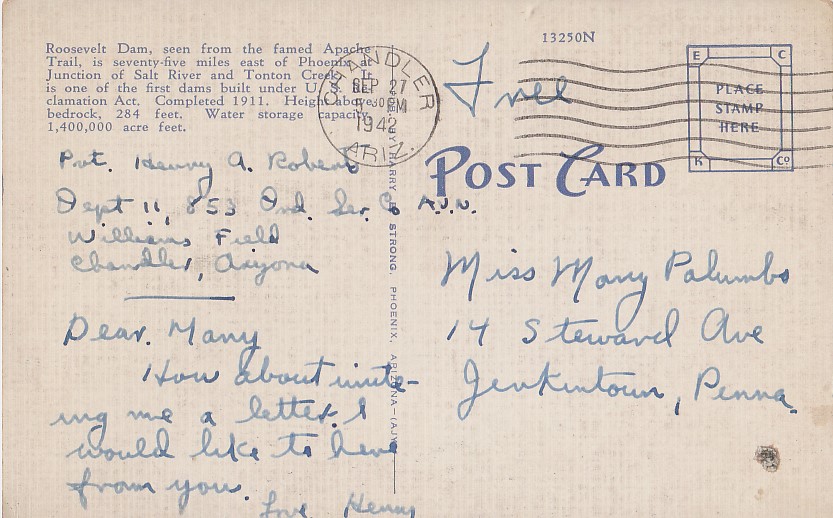 13250N
Roosevelt Dam, seen from the famed Apache
Trail, is seventy-five miles east of Phoenix at
Junction of Salt River and Tonton Creek. It
is one of the first dams built under U. S. Re-
clamation Act. Completed 1911. Height above
bedrock, 284 feet. Water storage capacity
1,400,000 acre feet.
CHANDLER
SEP 27
PM
1942
ARIZ.
Free
E C
PLACE
STAMP
HERE
K Co
POST CARD
Pvt. Henry A. Roberts
Dept 11, 853 Ord. Ser. Co A.V.N.
Williams Field
Chandler, Aryona
Dear. Mary
How about write-
ing me a letter. I
would like to hear
from you.
Love Henry
BY HARRY E. STRONG, PHOENIX, ARIZONA—(AJY)
Miss Mary Palumbo
14 Steward Ave
Jenkintown, Penna.